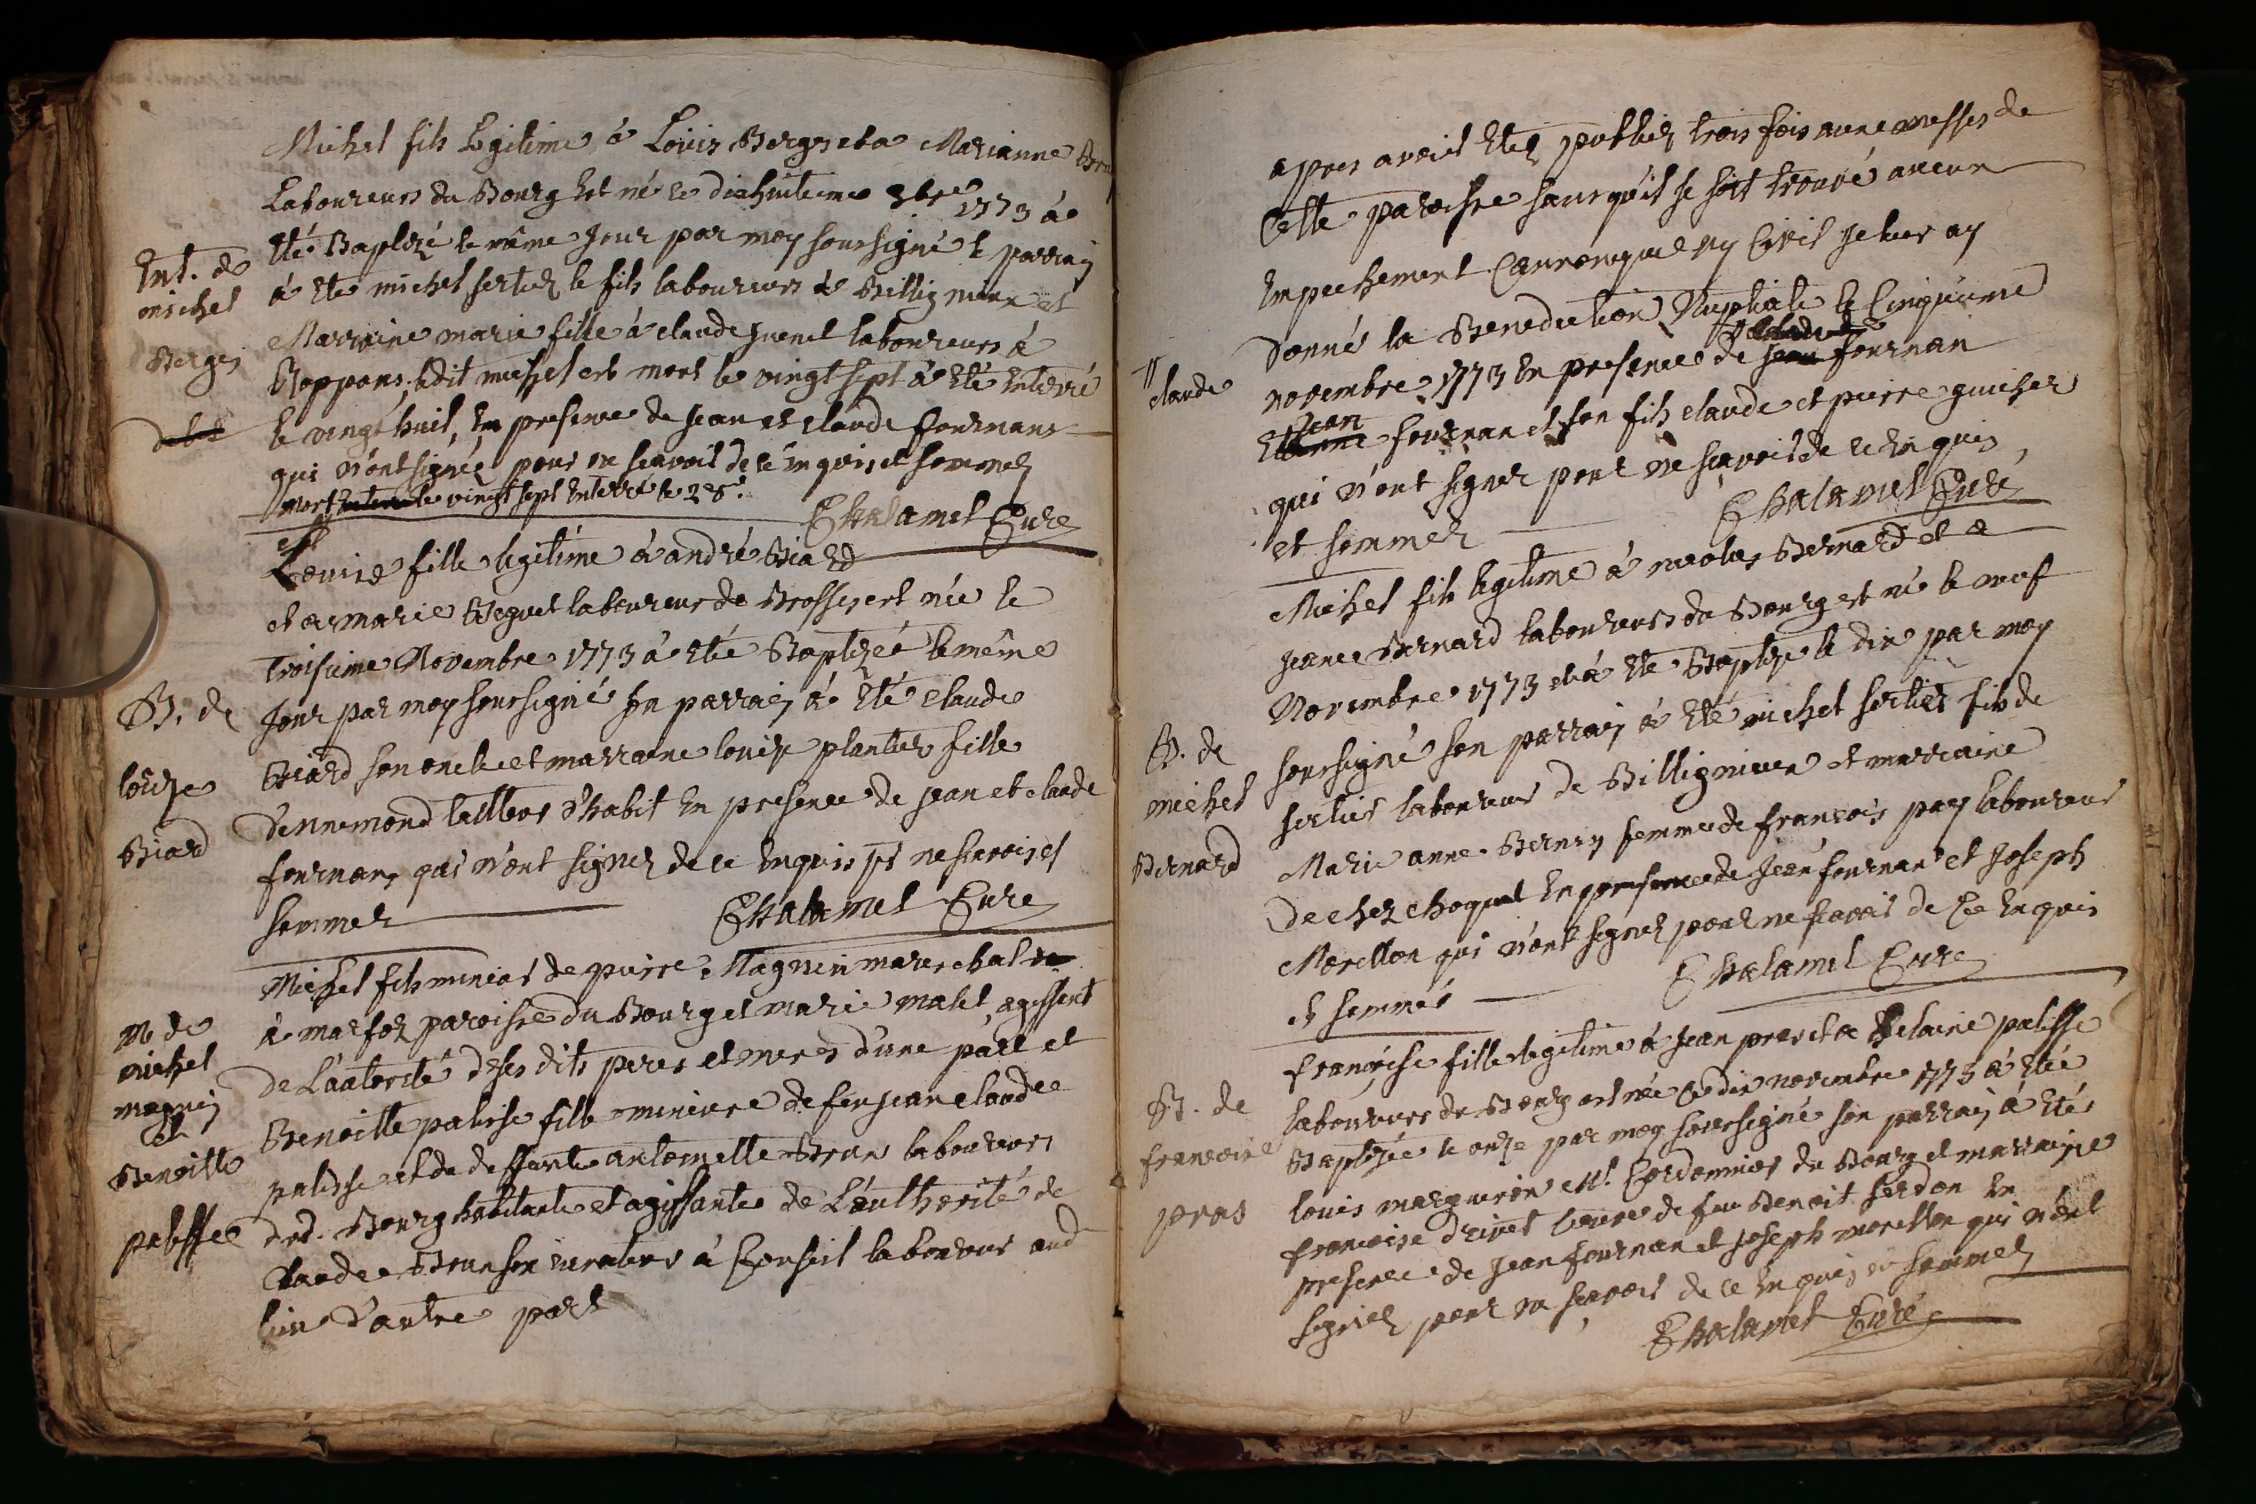 Michel fils Legitime à Louis Berger et a Marianne
Laboureurs du Bourg Est né le dixhuitieme 1773 à
Eté Baptizé le même Jour par moy soussigné le parrain
à Eté michel sertier le fils laboureurs à Billignieux et
Ent. de
michel
Berger
Marraine marie fille à claude Juenet laboureurs à
Boppons, ledit michel est mort le vingt sept à Eté Enterré
le vingt huit, En presence de Jean et claude fournans
qui n'ont signés pour ne scavoir de ce Enquis et sommez
mort le vingt sept Enterré le 28e.
Chalamel Curé
Louise fille legitime à andré Biard
et a marie laboureurs de Brosses est née le
troisieme Novembre 1773 à Eté Baptizée le même
Jour par moy soussigné son parrain à Eté claude
B. de
louize
Biard
Biard son oncle et marraine louize plantier fille
d'ennemond tailleur d'habit En presence de jean et claude
fournan, qui n'ont signez de ce Enquis pr ne scavoir et
sommez
Chalamel Curé
Michel fils mineur de pierre Magnin marechal
à marfoz paroisse du Bourg et marie malet, agissent
de L'autorité deses dits peres et meres d'une part et
M de
michel
magnin
et
Benoitte
palisse
Benoitte palisse fille mineure de feu jean claude
palisse et de deffunte antoinette Brun laboureurs
dud. Bourg habitante et agissante de L'authorité de
claude Brun son curateur à Conseil laboureur aud
lieu d'autre part
apres avoir Etez publiez trois fois aux messes de
Cette paroisse sans qu'il se soit trouvé aucun
Empechement Cannonique ny Civil Je leur ay
donnés la Benediction Nuptiale le Cinquieme
claude
novembre 1773 En presence de jean fournan
Jean fournan et son fils claude et pierre guichez
qui n'ont signez pour ne scavoir de ce Enquis
et sommez
Chalamel Curé
Michel fils legitime à nicolas Bernard et a
jeanne Bernard laboureurs du Bourg est né le neuf
Novembre 1773 et à Eté Baptize le dix par moy
B. de
michel
Bernard
soussigné son parrain à Eté michel sertier fils de
sertier laboureur de Billignieux et marraine
Marie anne Berney femme de francois pay laboureur
de chez choquet En presence de Jean fournan et Joseph
Morellon qui n'ont signez pour ne scavoir de Ce Enquis
et sommés
Chalamel Curé
francoise fille legitime à Jean pras et a helaine palisse
B. de
francoise
pras
laboureurs du Bourg est née le dix novembre 1773 à Etée
Baptizée le onze par moy soussigné son parrain à Etés
louis marguerin Mt. Cordonnier du Bourg et marraine
francoise drivet veuve de feu Benoit serdon En
presence de Jean fournan et Joseph morellon qui n'ont
signez pour ne scavoir de ce Enquis et sommez
Chalamel Curé